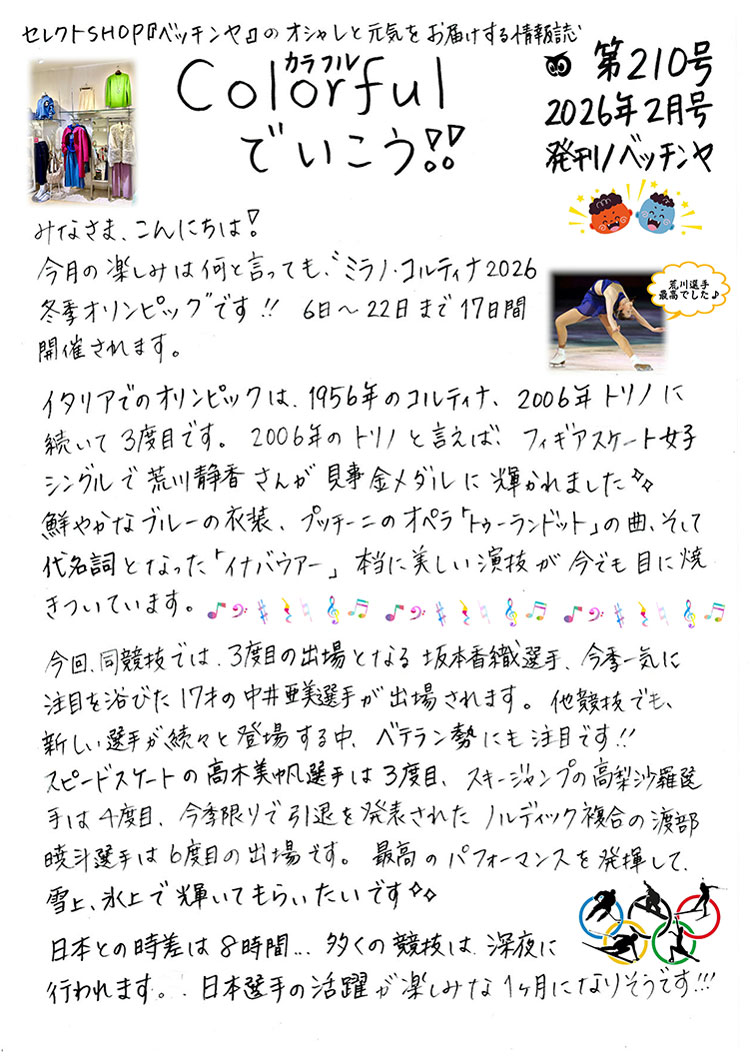 セレクトSHOP『ベッチンヤ』の オシャレと元気を お届けする情報誌
カラフル
Colorful
でいこう!!
第210号
2026年2月号
発刊/ベッチンヤ
みなさま、こんにちは!
今月の楽しみは何と言っても、"ミラノ・コルティナ2026
冬季オリンピック"です!! 6日〜22日まで17日間
開催されます。
荒川選手
最高でした♪
イタリアでのオリンピックは、1956年のコルティナ、2006年トリノに
続いて3度目です。2006年のトリノと言えば、フィギアスケート女子
シングルで荒川静香さんが見事金メダルに輝かれました✨
鮮やかなブルーの衣装、プッチーニのオペラ「トゥーランドット」の曲、そして
代名詞となった「イナバウアー」本当に美しい演技が今でも目に焼
きついています。
今回、同競技では、3度目の出場となる坂本香織選手、今季一気に
注目を浴びた17才の中井亜美選手が出場されます。他競技でも、
新しい選手が続々と登場する中、ベテラン勢にも注目です!!
スピードスケートの高木美帆選手は3度目、スキージャンプの高梨沙羅選
手は4度目、今季限りで引退を発表されたノルディック複合の渡部
暁斗選手は6度目の出場です。最高のパフォーマンスを発揮して、
雪上、氷上で輝いてもらいたいです✨
日本との時差は8時間... 多くの競技は、深夜に
行われます。. 日本選手の活躍が楽しみな1ヶ月になりそうです!!!